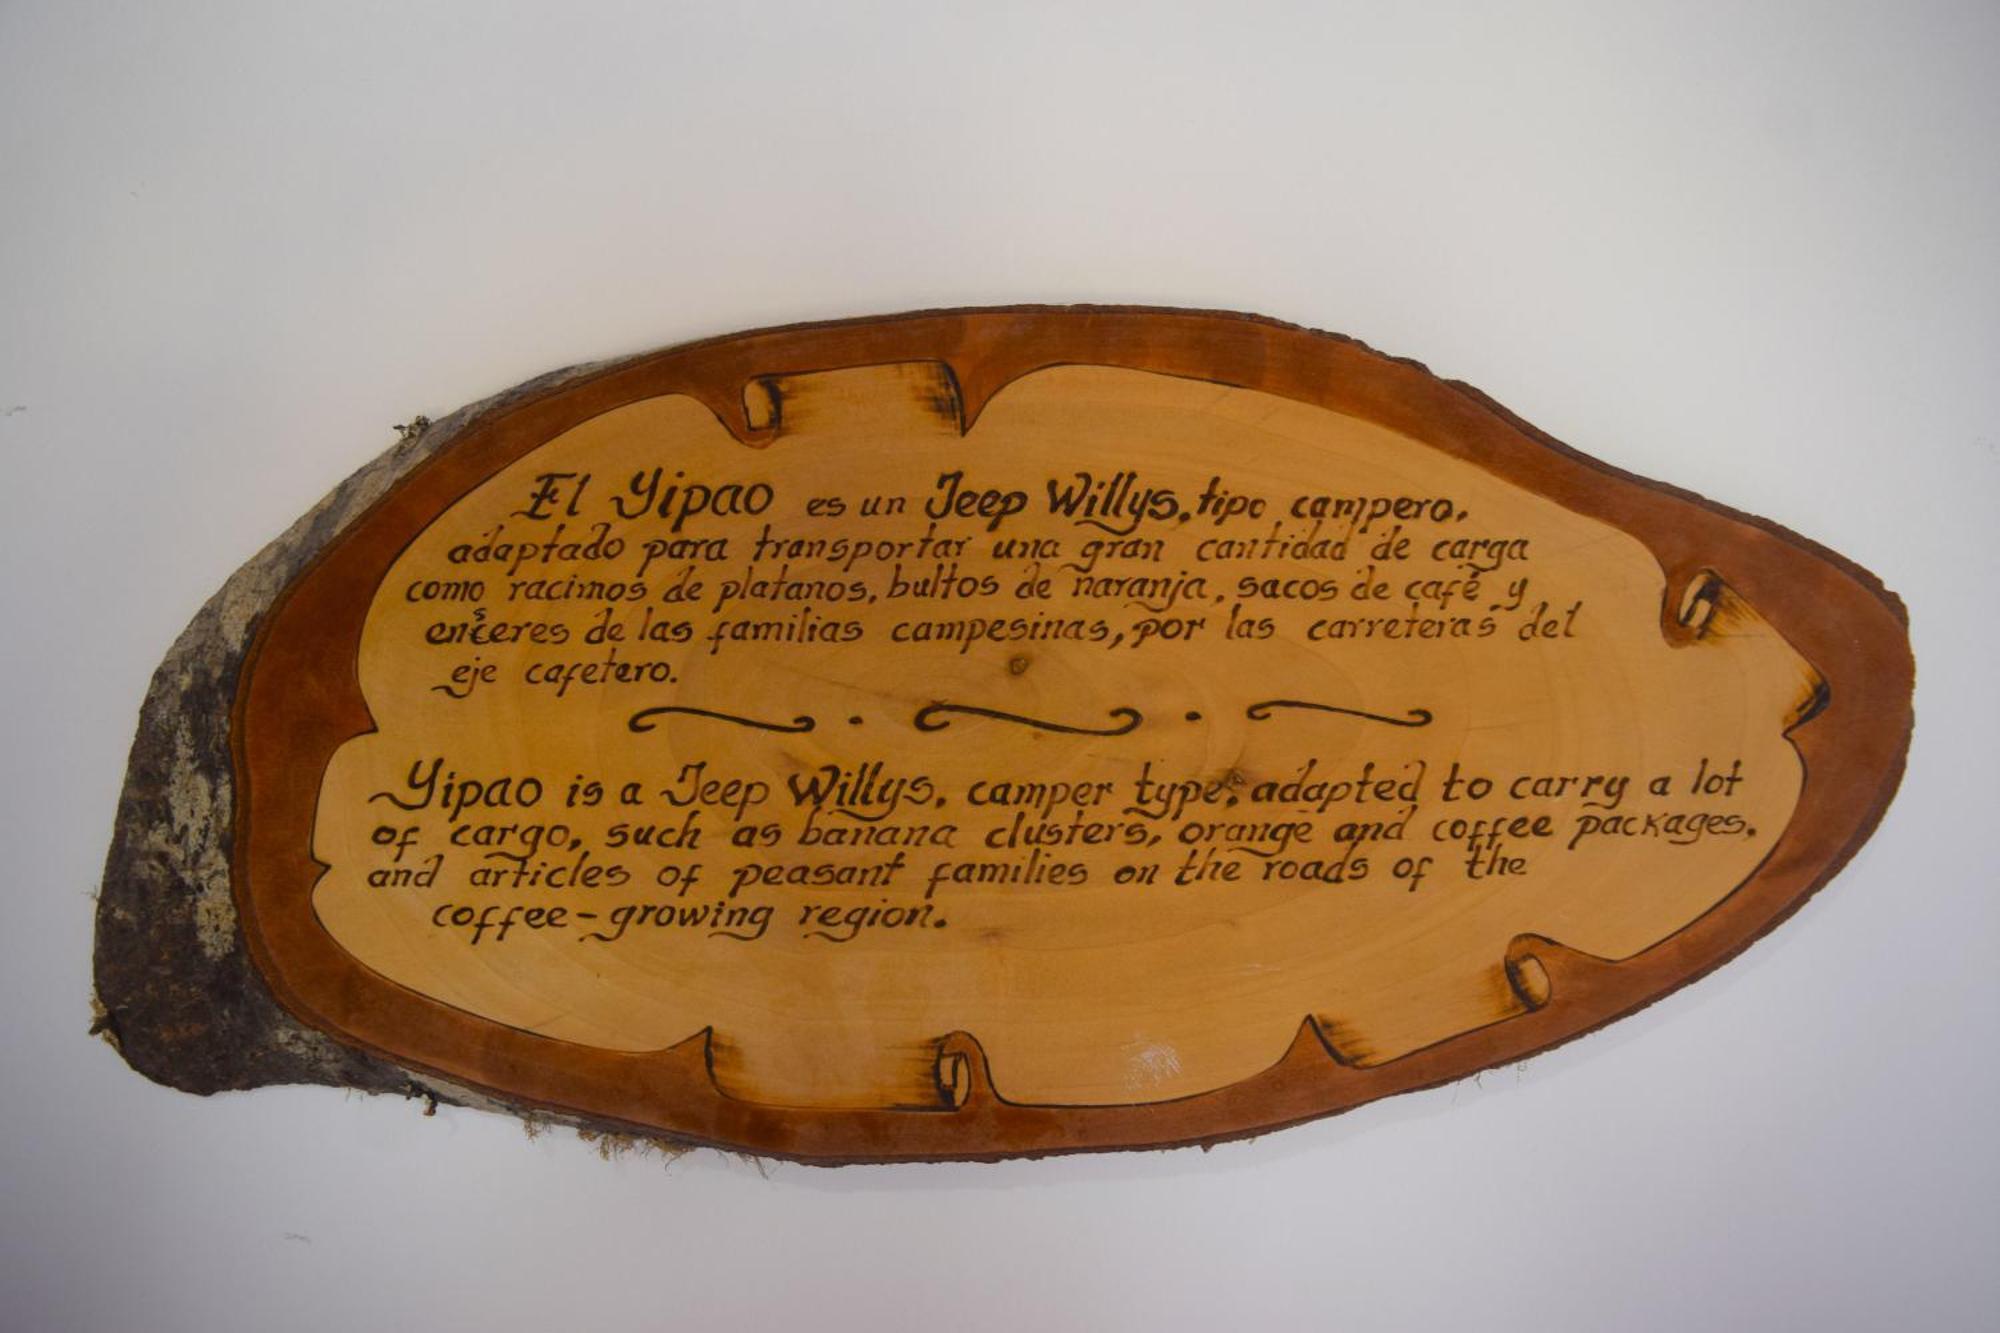 El Yipao es un Jeep Willys, tipo campero,
adaptado para transportar una gran cantidad de carga
como racimos de platanos, bultos de naranja, sacos de café y
enseres de las familias campesinas, por las carreteras del
eje cafetero.
Yipao is a Jeep Willys, camper type, adapted to carry a lot
of cargo, such as banana clusters, orange and coffee packages,
and articles of peasant families on the roads of the
coffee-growing region.